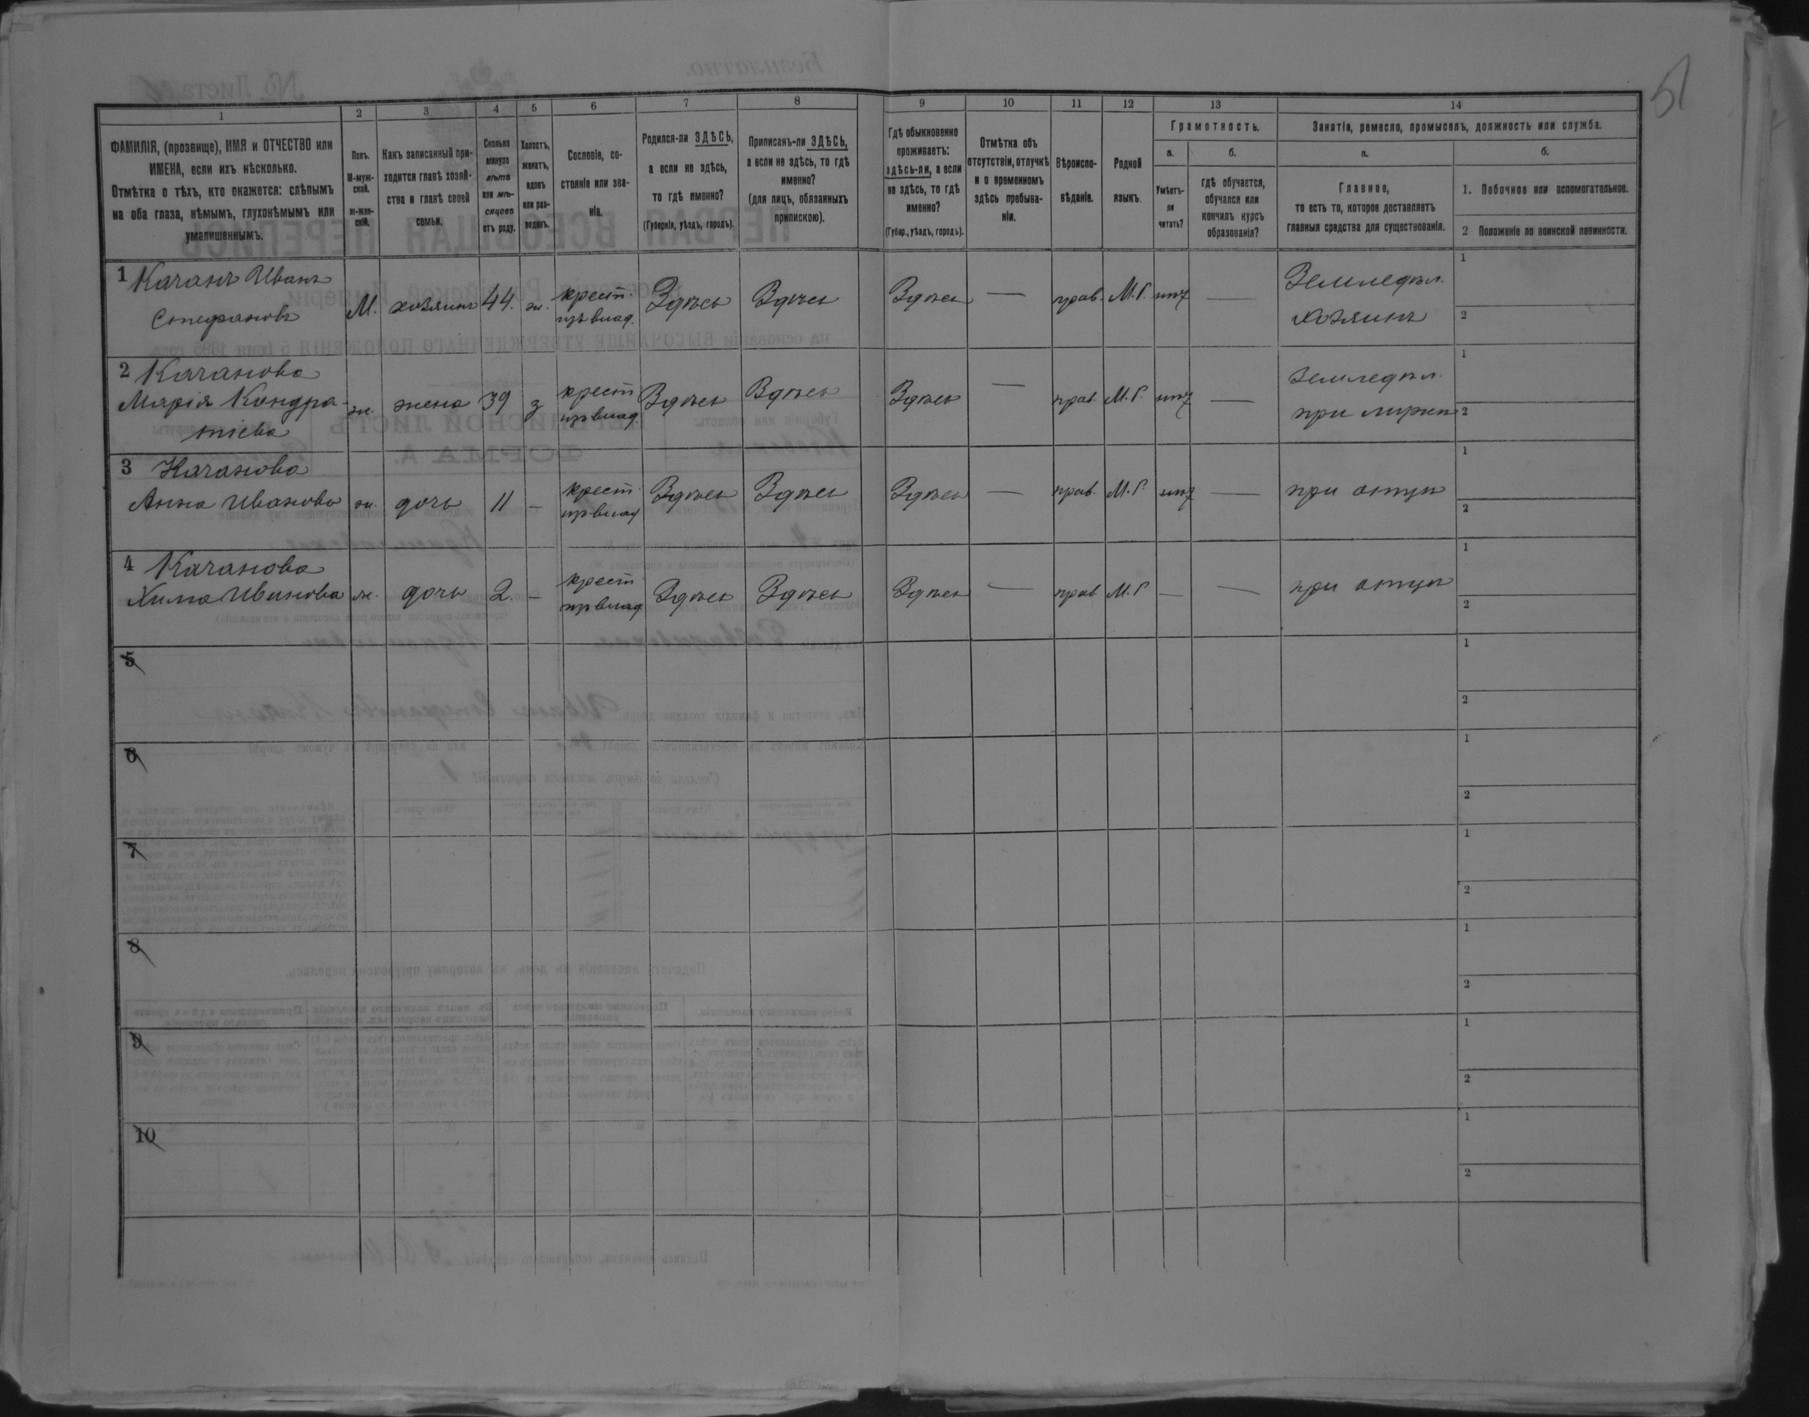 51
1 2 3 4 5 6 7 8 9 10 11 12 13 14
ФАМИЛІЯ, (прозвище), ИМЯ и ОТЧЕСТВО или
ИМЕНА, если ихъ нѣсколько.
Отмѣтка о тѣхъ, кто окажется: слѣпымъ
на оба глаза, нѣмымъ, глухонѣмымъ или
умалишеннымъ.
Полъ.
М-муж-
ской.
ж-жен-
скій.
Какъ записанный при-
ходится главѣ хозяй-
ства и главѣ своей
семьи.
Сколько
минуло
лѣтъ
или мѣ-
сяцевъ
отъ роду.
Холостъ,
женатъ,
вдовъ
или раз-
веденъ.
Сословіе, со-
стояніе или зва-
ніе.
Родился-ли ЗДѢСЬ,
а если не здѣсь,
то гдѣ именно?
(Губернія, уѣздъ, городъ).
Приписанъ-ли ЗДѢСЬ,
а если не здѣсь, то гдѣ
именно?
(для лицъ, обязанныхъ
припискою).
Гдѣ обыкновенно
проживаетъ:
здѣсь-ли, а если
не здѣсь, то гдѣ
именно?
(Губер., уѣздъ, городъ).
Отмѣтка объ
отсутствіи, отлучкѣ
и о временномъ
здѣсь пребыва-
ніи.
Вѣроиспо-
вѣданіе.
Родной
языкъ.
Грамотность.
а.
Умѣетъ-
ли
читать?
б.
гдѣ обучается,
обучался или
кончилъ курсъ
образованія?
Занятіе, ремесло, промыселъ, должность или служба.
а.
Главное,
то есть то, которое доставляетъ
главныя средства для существованія.
б.
1. Побочное или вспомогательное.
2 Положеніе по воинской повинности.
1 Качанъ Иванъ
Стефановъ
М. хозяинъ 44. ж. крест. Здѣсь Здѣсь Здѣсь — прав. М.Р. — Земледѣл.
хозяинъ
1
2
2 Качанова
Марія Кондра-
тіева
ж. жена 39 з крест Здѣсь Здѣсь Здѣсь — прав. М.Р. — Земледѣл.
при
1
2
3 Качанова
Анна Иванова ж. дочь 11 — крест. Здѣсь Здѣсь Здѣсь — прав. М.Р. — при отцѣ
1
2
4 Качанова
Хима Иванова ж. дочь 2. — крест. Здѣсь Здѣсь Здѣсь — прав. М.Р. — — при отцѣ
1
2
5
1
2
6
1
2
7
1
2
8
1
2
9
1
2
10
1
2